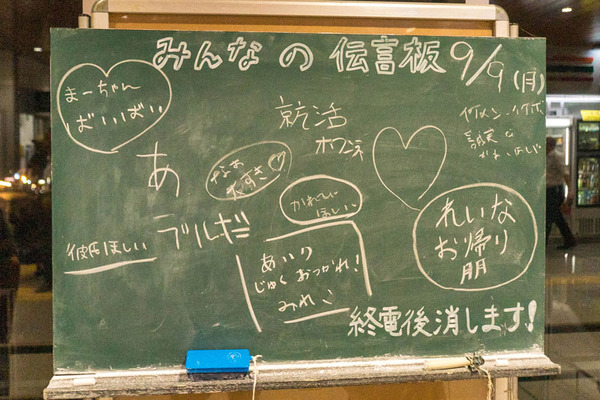 みんなの伝言板 9/9(月)
まーちゃん
ばいばい
就活
オワシネ
イケメン、イケボ
誠実な
あ
なお
大すき
かれしー
ほしい
れいな
お帰り
朋
彼氏ほしい
ラルゼ
あいり
じゅくおつかれ!
みれい
終電後消します!